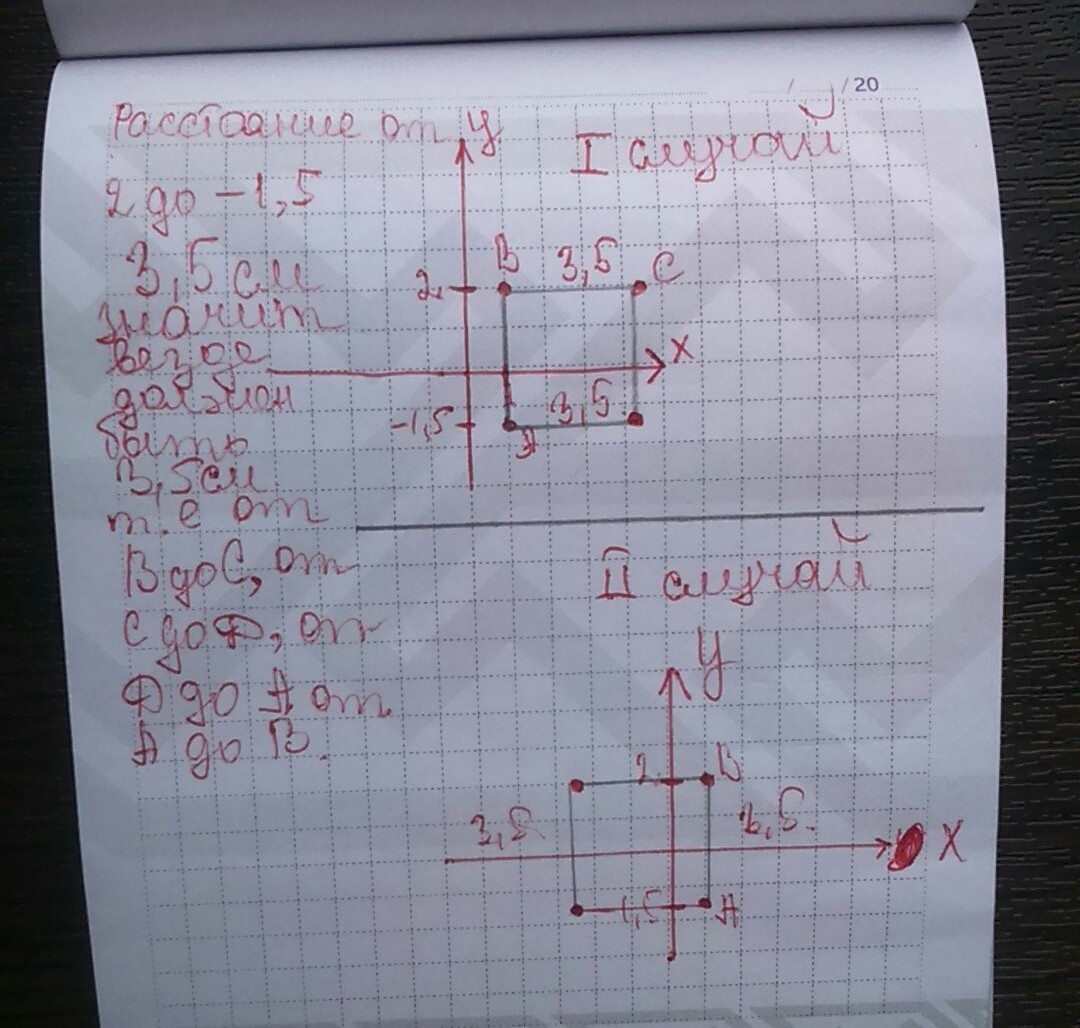 / /20
Расстояние от
2 до -1,5
3,5 см
значит
везде
должон
быть
3,5см
т.е от
В до С, от
С до Д, от
Д до А от
А до В.
y
I случай
В 3,5 С
2
x
-1,5 3,5
А
II случай
y
2 В
3,5 3,5.
X
-1,5 А